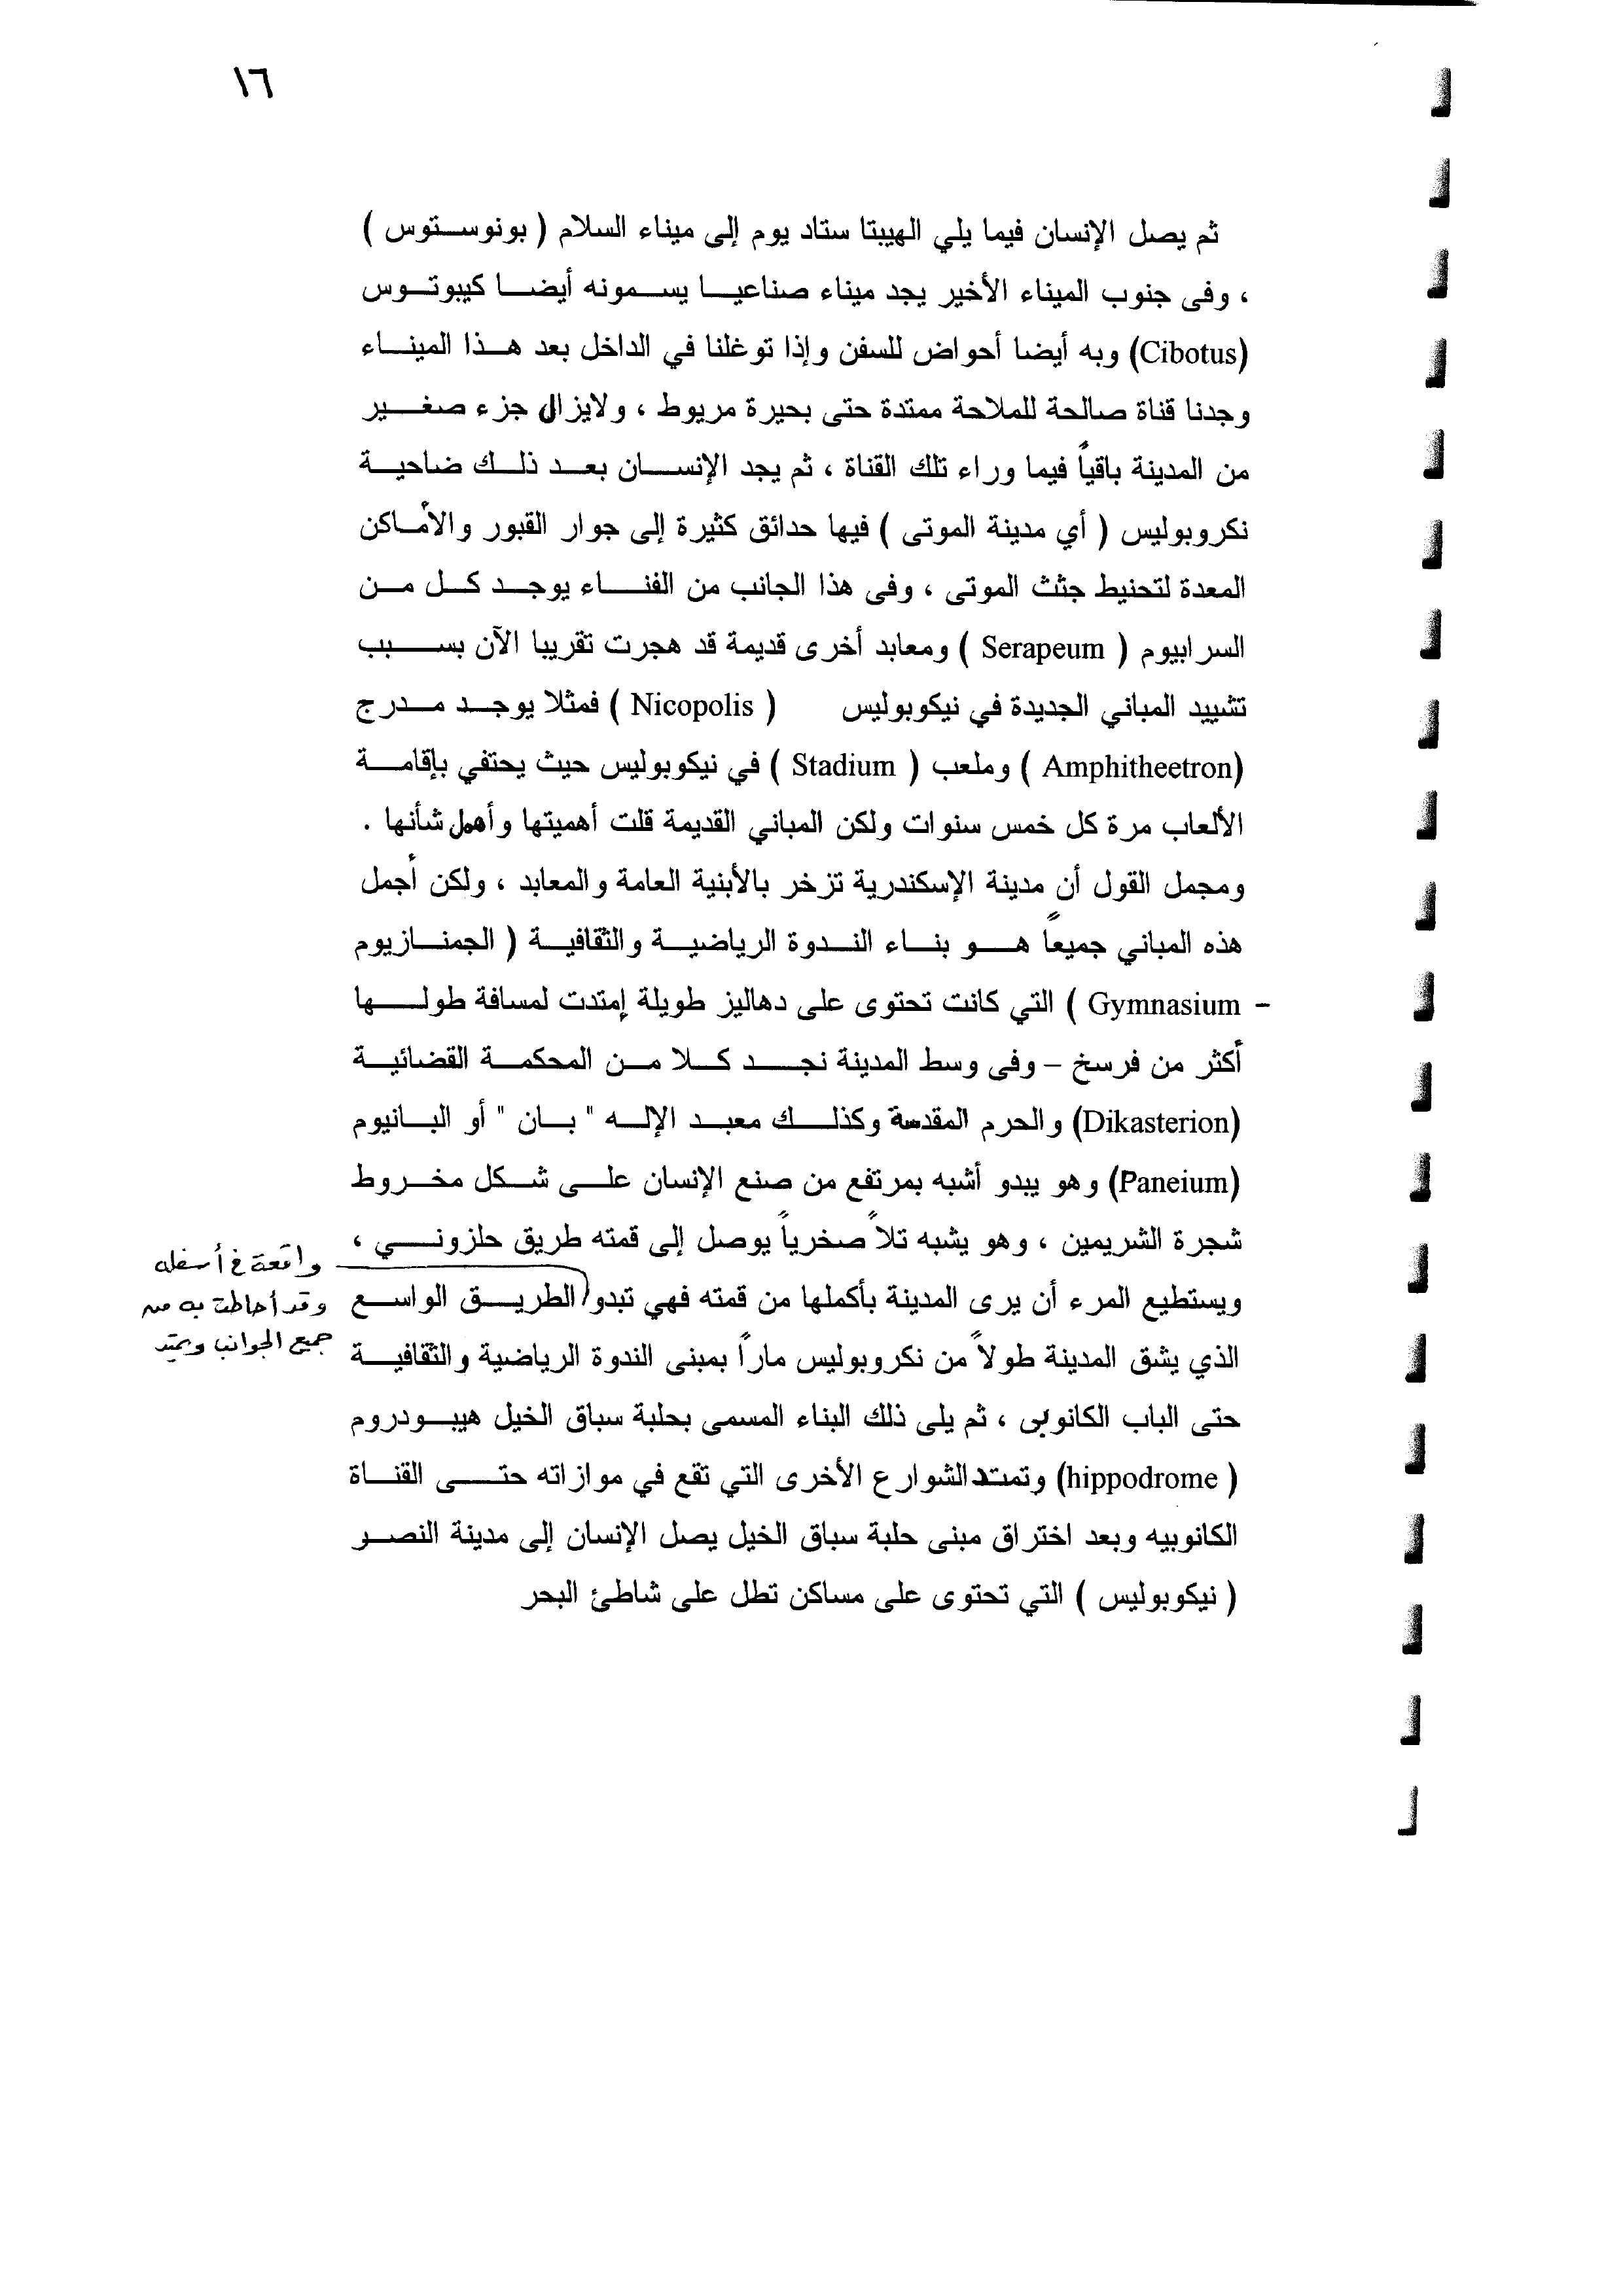 ١٦
ثم يصل الإنسان فيما يلي الهيبتا ستاد يوم إلى ميناء السلام ( بونوستوس )
، وفى جنوب الميناء الأخير يجد ميناء صناعيا يسمونه أيضا كيبوتوس
(Cibotus) وبه أيضا أحواض للسفن وإذا توغلنا في الداخل بعد هذا الميناء
وجدنا قناة صالحة للملاحة ممتدة حتى بحيرة مريوط ، ولايزال جزء صغير
من المدينة باقياً فيما وراء تلك القناة ، ثم يجد الإنسان بعد ذلك ضاحية
نكروبوليس ( أي مدينة الموتى ) فيها حدائق كثيرة إلى جوار القبور والأماكن
المعدة لتحنيط جثث الموتى ، وفى هذا الجانب من الفناء يوجد كل من
السرابيوم ( Serapeum ) ومعابد أخرى قديمة قد هجرت تقريبا الآن بسبب
تشييد المباني الجديدة في نيكوبوليس ( Nicopolis ) فمثلا يوجد مدرج
(Amphitheetron ) وملعب ( Stadium ) في نيكوبوليس حيث يحتفي بإقامة
الألعاب مرة كل خمس سنوات ولكن المباني القديمة قلت أهميتها وأهمل شأنها .
ومجمل القول أن مدينة الإسكندرية تزخر بالأبنية العامة والمعابد ، ولكن أجمل
هذه المباني جميعاً هو بناء الندوة الرياضية والثقافية ( الجمنازيوم
– Gymnasium ) التي كانت تحتوى على دهاليز طويلة إمتدت لمسافة طولها
أكثر من فرسخ – وفى وسط المدينة نجد كلا من المحكمة القضائية
(Dikasterion) والحرم المقدسة وكذلك معبد الإله " بان " أو البانيوم
(Paneium) وهو يبدو أشبه بمرتفع من صنع الإنسان على شكل مخروط
شجرة الشربمين ، وهو يشبه تلاً صخرياً يوصل إلى قمته طريق حلزوني ،
ويستطيع المرء أن يرى المدينة بأكملها من قمته فهي تبدو الطريق الواسع
واقعة في أسفله
وقد أحاطت به من
جميع الجوانب ويمتد
الذي يشق المدينة طولاً من نكروبوليس ماراً بمبنى الندوة الرياضية والثقافية
حتى الباب الكانوبى ، ثم يلى ذلك البناء المسمى بحلبة سباق الخيل هيبودروم
( hippodrome) وتمتد الشوارع الأخرى التي تقع في موازاته حتى القناة
الكانوبيه وبعد اختراق مبنى حلبة سباق الخيل يصل الإنسان إلى مدينة النصر
( نيكوبوليس ) التي تحتوى على مساكن تطل على شاطئ البحر